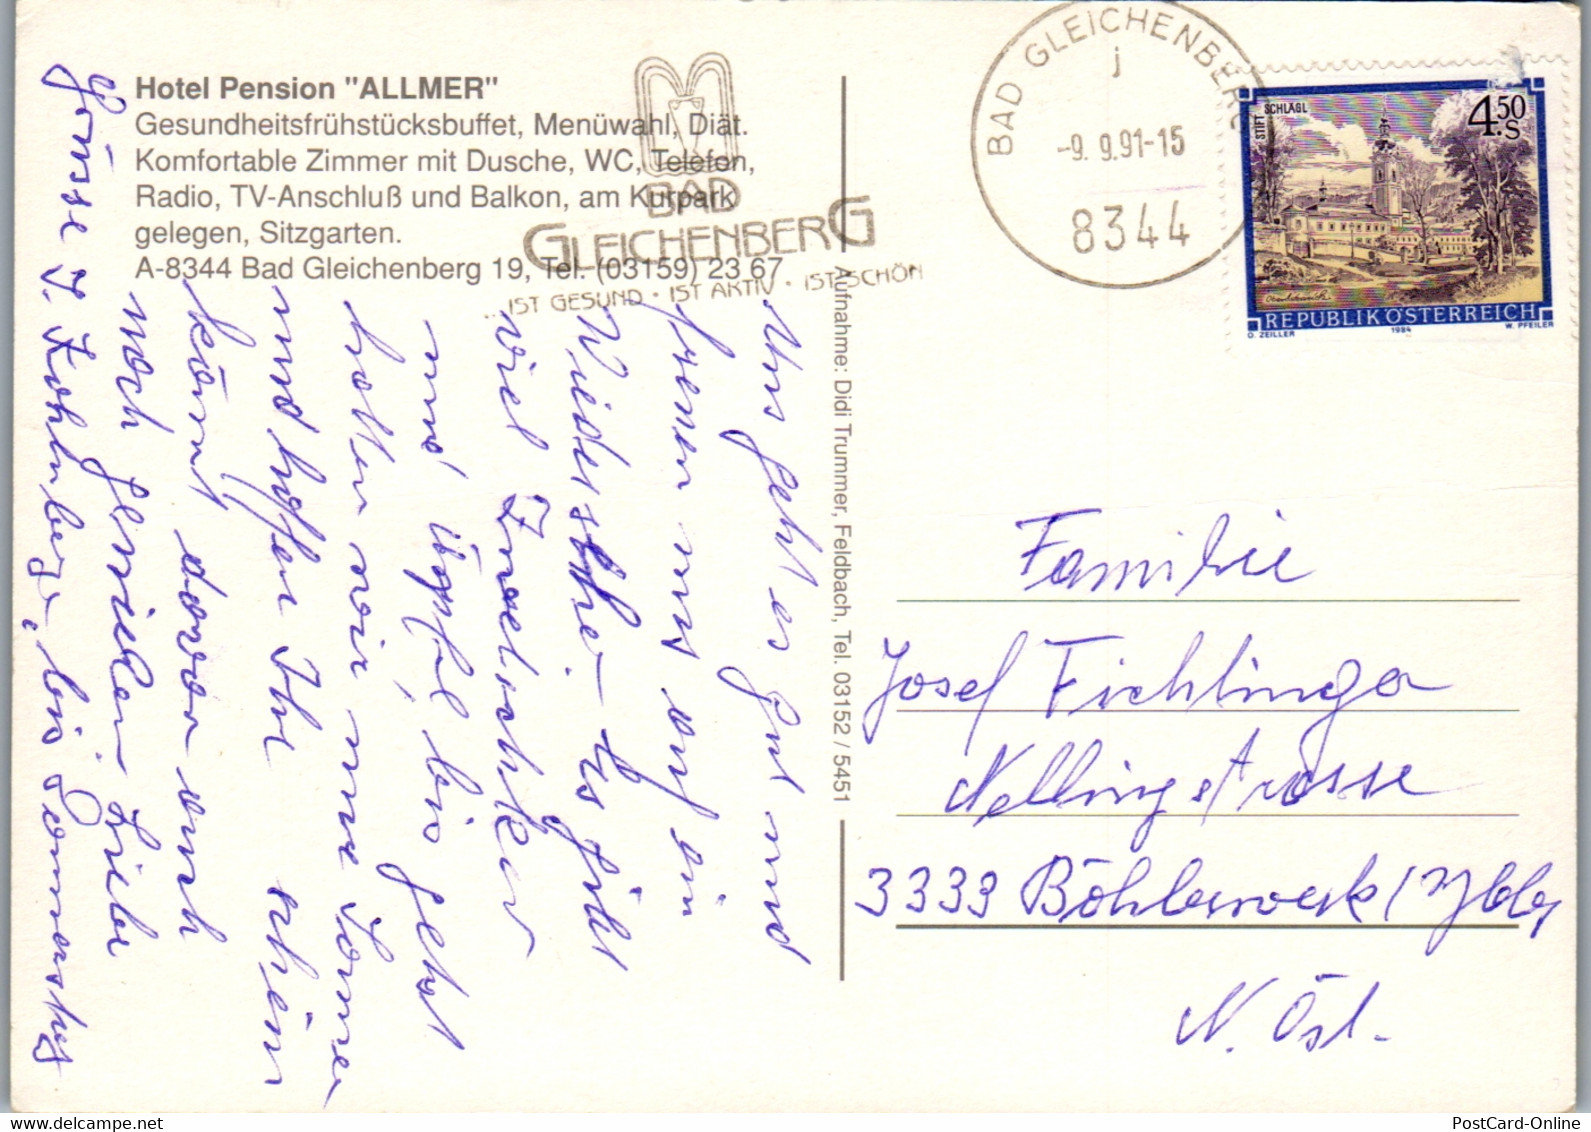 Hotel Pension "ALLMER"
Gesundheitsfrühstücksbuffet, Menüwahl, Diät.
Komfortable Zimmer mit Dusche, WC, Telefon,
Radio, TV-Anschluß und Balkon, am Kurpark
gelegen, Sitzgarten.
A-8344 Bad Gleichenberg 19, Tel. (03159) 23 67
BAD
GLEICHENBERG
...IST GESUND · IST AKTIV · IST SCHÖN
BAD GLEICHENBERG
j
-9. 9.91-15
8344
STIFT SCHLÄGL
4.50
S
REPUBLIK ÖSTERREICH
O. ZEILLER 1984 W. PFEILER
Aufnahme: Didi Trummer, Feldbach, Tel. 03152 / 5451
Uns geht es gut und
freuen uns auf ein
Wiedersehen. Es gibt
viel
und Äpfel, bis jetzt
hatten wir nur Sonne
und hoffen Ihr
kommt, davon auch
noch Liebe
Grüsse
bis Donnerstag
Familie
Josef Fichlinger
Nellingstrasse
3333 Böhlerwerk / Ybbs
N. Öst.
PostCard-Online